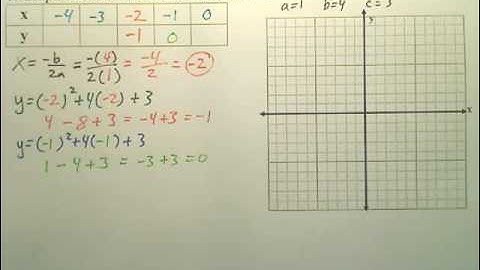 a=1 b=4 c=3
x -4 -3 -2 -1 0
y -1 0
x = -b/2a = -(4)/2(1) = -4/2 = -2
y=(-2)²+4(-2)+3
4-8+3 = -4+3 = -1
y=(-1)²+4(-1)+3
1-4+3 = -3+3=0
y
x